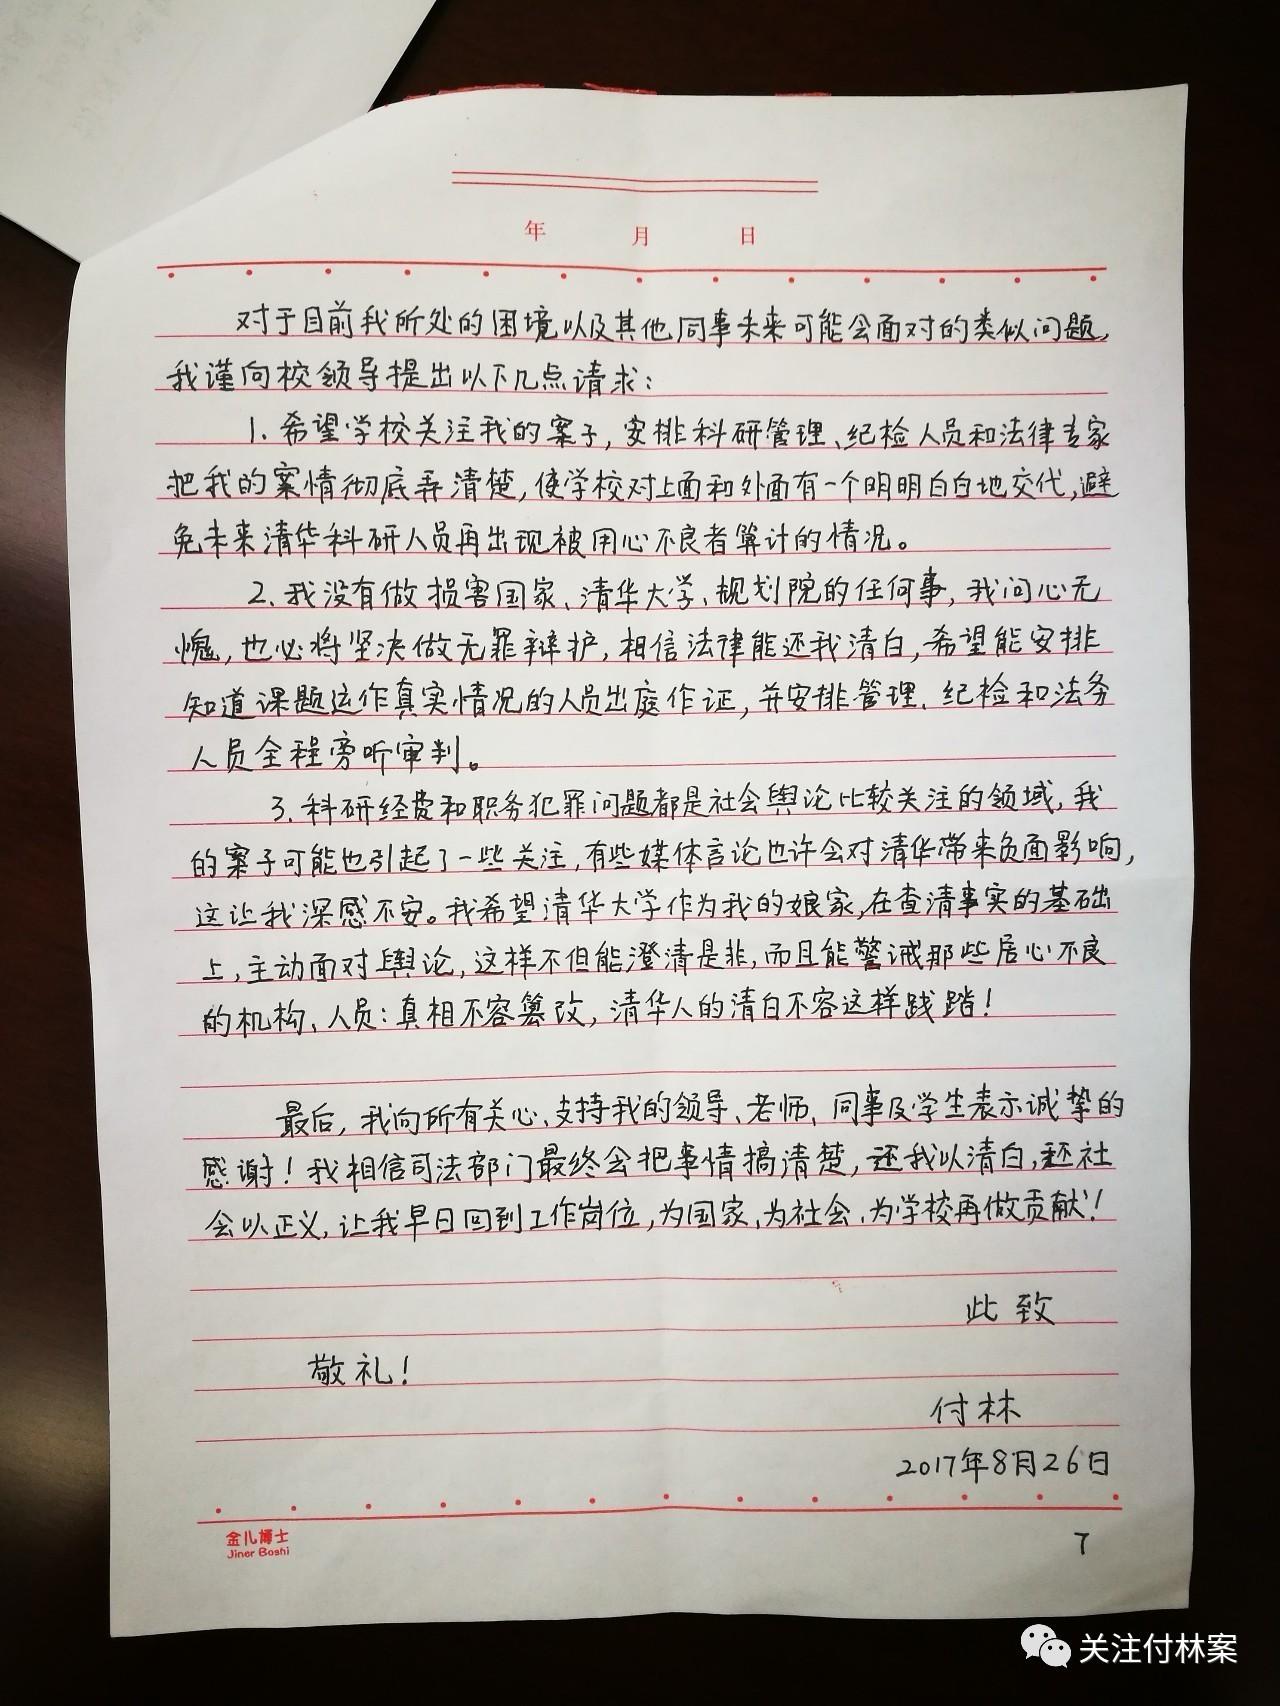 年 月 日
对于目前我所处的困境以及其他同事未来可能会面对的类似问题,
我谨向校领导提出以下几点请求:
1.希望学校关注我的案子,安排科研管理、纪检人员和法律专家
把我的案情彻底弄清楚,使学校对上面和外面有一个明明白白地交代,避
免未来清华科研人员再出现被用心不良者算计的情况。
2.我没有做损害国家、清华大学、规划院的任何事,我问心无
愧,也必将坚决做无罪辩护,相信法律能还我清白,希望能安排
知道课题运作真实情况的人员出庭作证,并安排管理、纪检和法务
人员全程旁听审判。
3.科研经费和职务犯罪问题都是社会舆论比较关注的领域,我
的案子可能也引起了一些关注,有些媒体言论也许会对清华带来负面影响,
这让我深感不安。我希望清华大学作为我的娘家,在查清事实的基础
上,主动面对舆论,这样不但能澄清是非,而且能警诫那些居心不良
的机构、人员:真相不容篡改,清华人的清白不容这样践踏!
最后,我向所有关心、支持我的领导、老师、同事及学生表示诚挚的
感谢!我相信司法部门最终会把事情搞清楚,还我以清白,还社
会以正义,让我早日回到工作岗位,为国家、为社会、为学校再做贡献!
此致
敬礼!
付林
2017年8月26日
金儿博士
Jiner Boshi
7
关注付林案